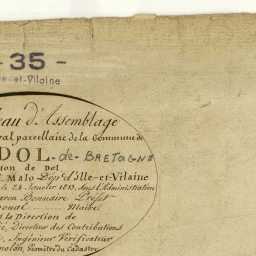 - 35 -
et-Vilaine
eau d'Assemblage
val parcellaire de la Commune de
DOL-de-BRETAGNE
ion de Dol
Malo Dép.t d'Ille-et-Vilaine
le 24 Janvier 1813, sous l'Administration
aron Bonnaire Préfet
Maire
la Direction de
Directeur des Contributions
Ingénieur Vérificateur
Géomètre du Cadastre